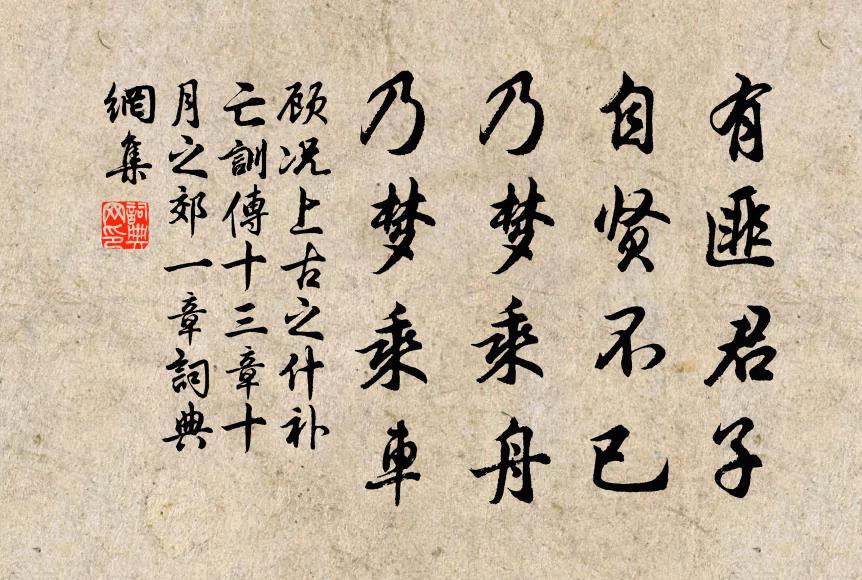 有匪君子
自贤不已
乃梦乘舟
乃梦乘車
顾况上古之什补
亡訓傳十三章十
月之郊一章詞典
網集
詞典
网印